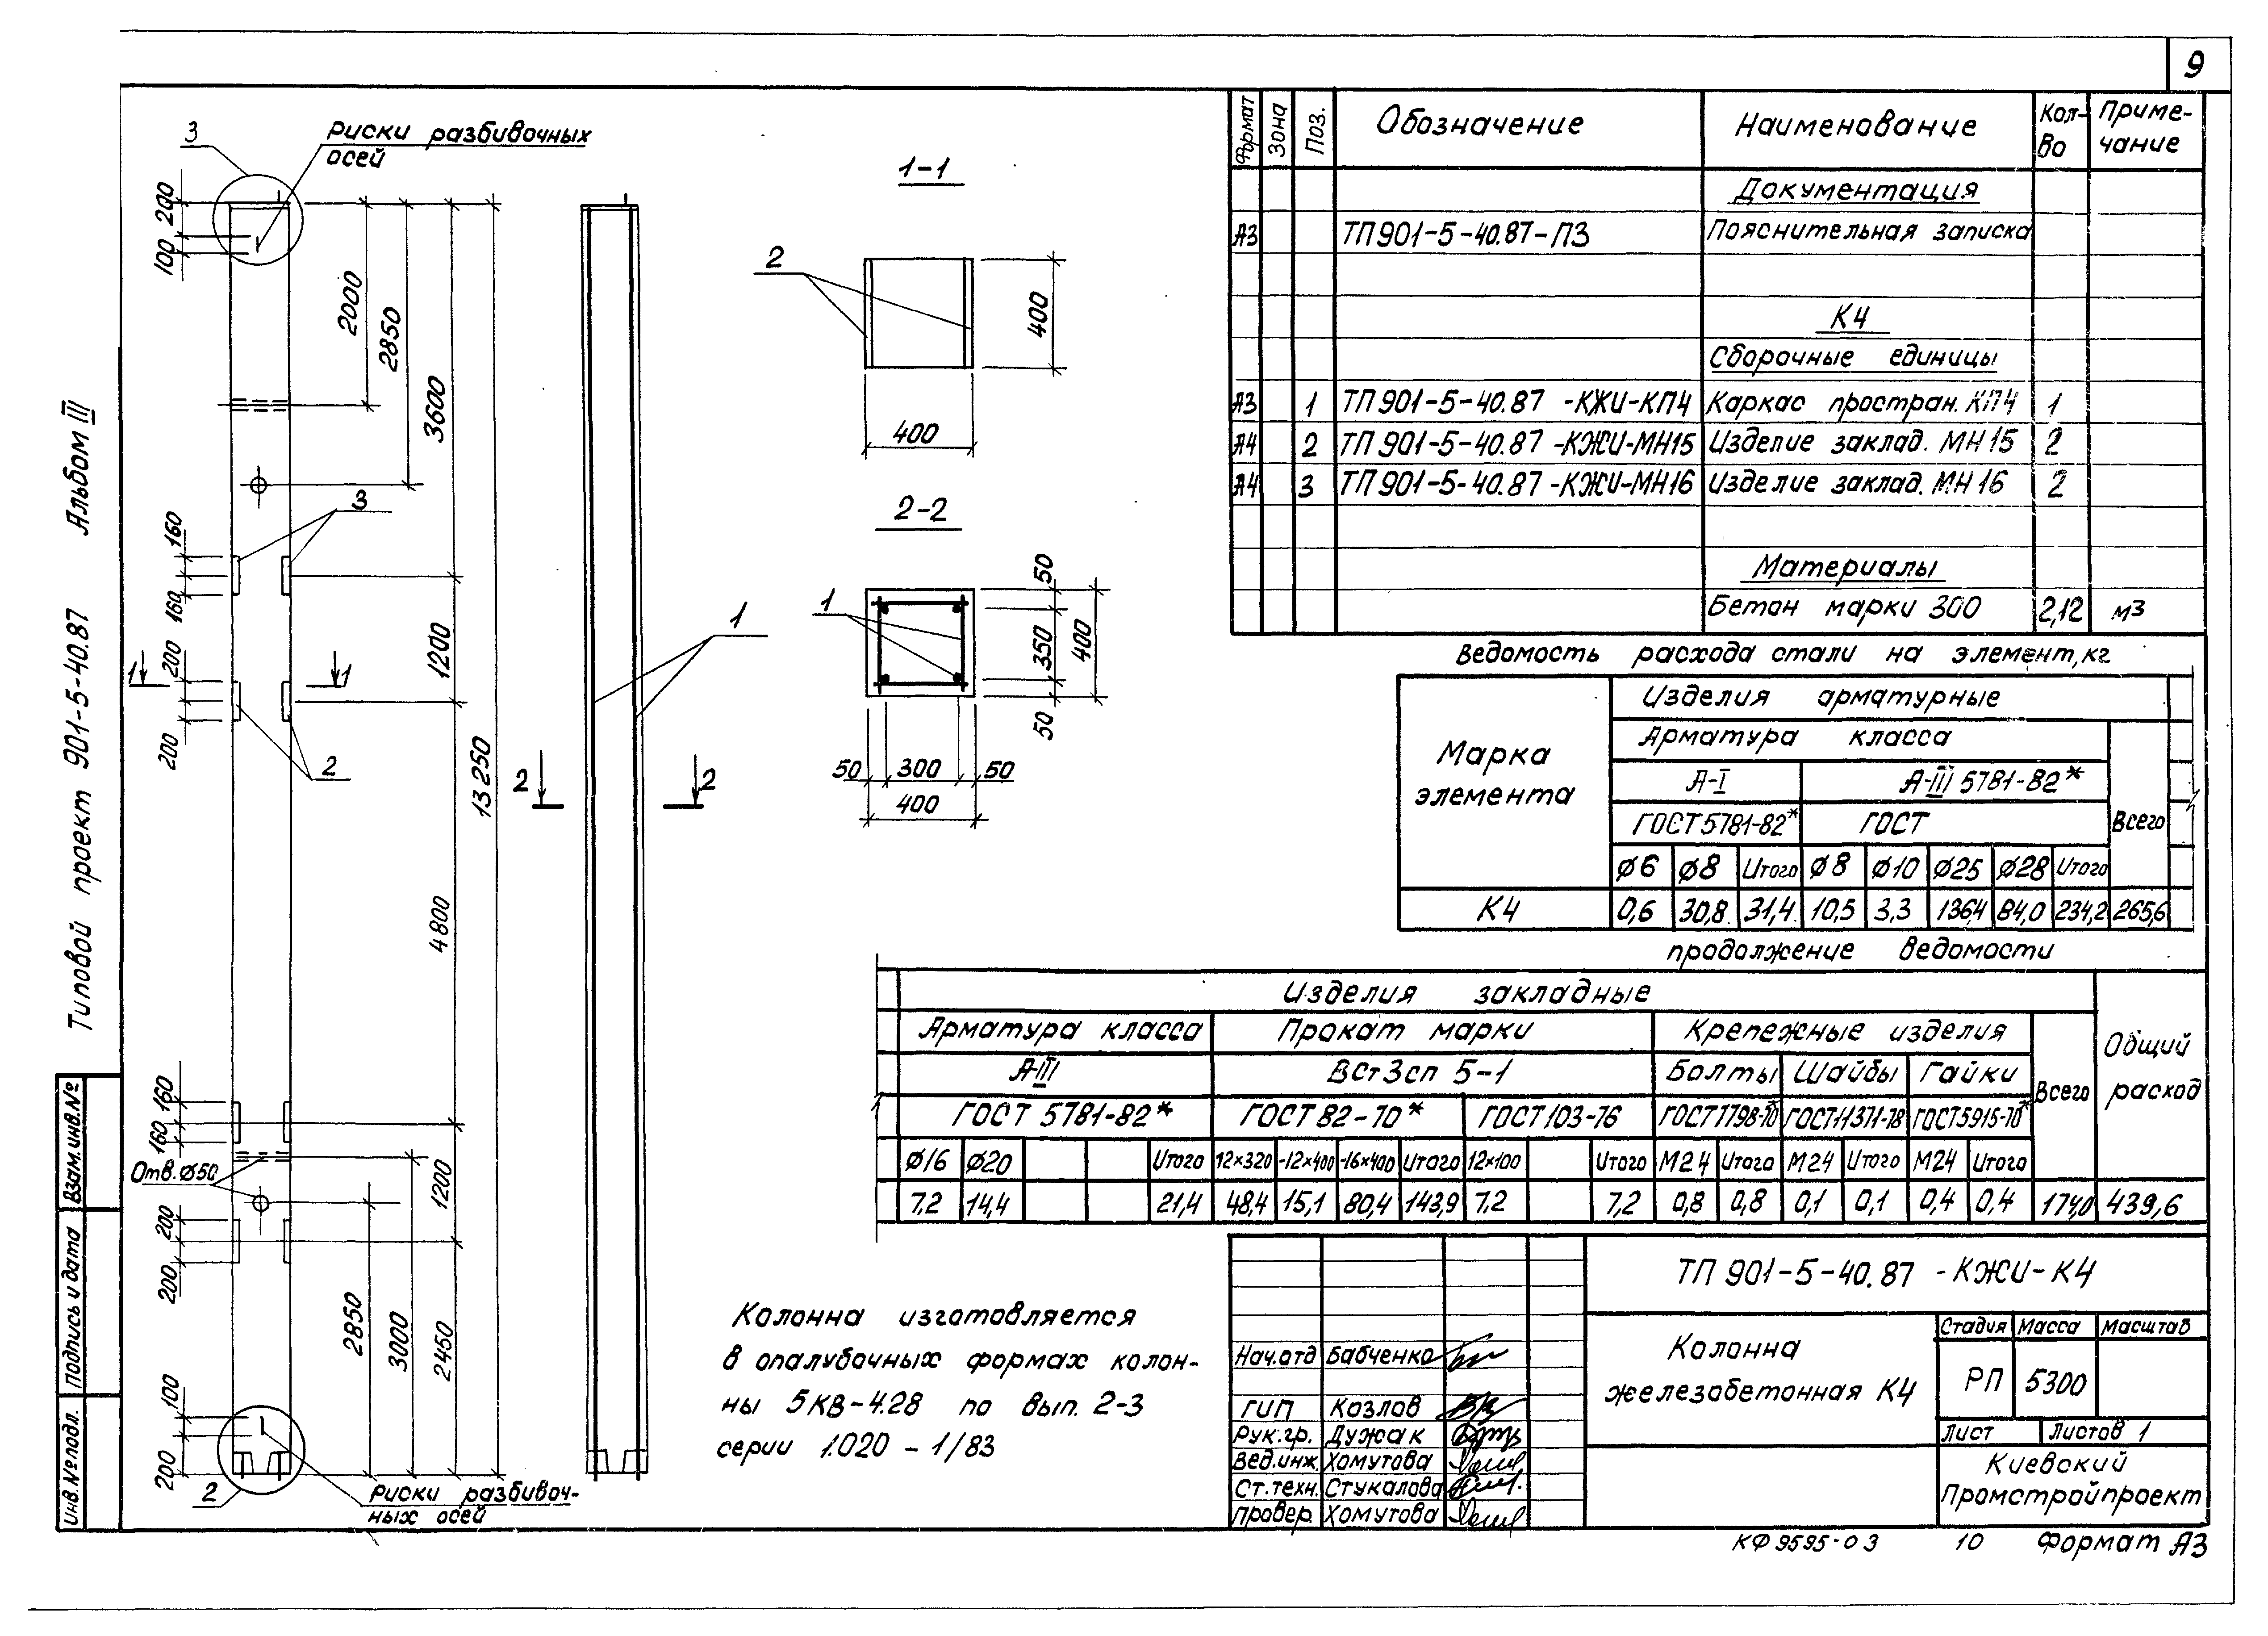 9
Риски разбивочных
осей
3
200
100
2000
2850
3600
160
160
3
1200
200
200
1
1
2
13250
4800
160
160
Отв. ⌀50
1200
200
200
2850
3000
2450
100
200
2
Риски разбивоч-
ных осей
1
2
2
1-1
2
400
400
2-2
1
50
350
50
400
50
300
50
400
Типовой проект 901-5-40.87 Альбом III
Взам.инв.№
Подпись и дата
Инв.№подл.
Формат Зона Поз. Обозначение Наименование Кол-во Приме-чание
Документация
А3 ТП901-5-40.87-ПЗ Пояснительная записка
К4
Сборочные единицы
А3 1 ТП901-5-40.87 -КЖИ-КП4 Каркас простран. КП4 1
А4 2 ТП901-5-40.87 -КЖИ-МН15 Изделие заклад. МН15 2
А4 3 ТП901-5-40.87 -КЖИ-МН16 Изделие заклад. МН16 2
Материалы
Бетон марки 300 2,12 м3
Ведомость расхода стали на элемент, кг
Марка элемента
Изделия арматурные
Арматура класса
А-I А-III 5781-82*
ГОСТ5781-82* ГОСТ Всего
⌀6 ⌀8 Итого ⌀8 ⌀10 ⌀25 ⌀28 Итого
К4 0,6 30,8 31,4 10,5 3,3 136,4 84,0 234,2 265,6
продолжение ведомости
Изделия закладные
Арматура класса Прокат марки Крепежные изделия Всего Общий расход
А-III ВСт3сп 5-1 Болты Шайбы Гайки
ГОСТ 5781-82* ГОСТ 82-70* ГОСТ103-76 ГОСТ7798-70* ГОСТ11371-78 ГОСТ5915-70*
⌀16 ⌀20 Итого 12×320 -12×400 -16×400 Итого 12×100 Итого М24 Итого М24 Итого М24 Итого
7,2 14,4 21,4 48,4 15,1 80,4 143,9 7,2 7,2 0,8 0,8 0,1 0,1 0,4 0,4 174,0 439,6
Колонна изготовляется
в опалубочных формах колон-
ны 5КВ-4.28 по вып. 2-3
серии 1.020 - 1/83
ТП 901-5-40.87 -КЖИ-К4
Колонна
железобетонная К4
Стадия Масса Масштаб
РП 5300
Лист Листов 1
Киевский
Промстройпроект
Нач.отд Бабченко
ГИП Козлов
Рук.гр. Дужак
Вед.инж. Хомутова
Ст.техн. Стукалова
Провер. Хомутова
КФ 9595-03 10 Формат А3